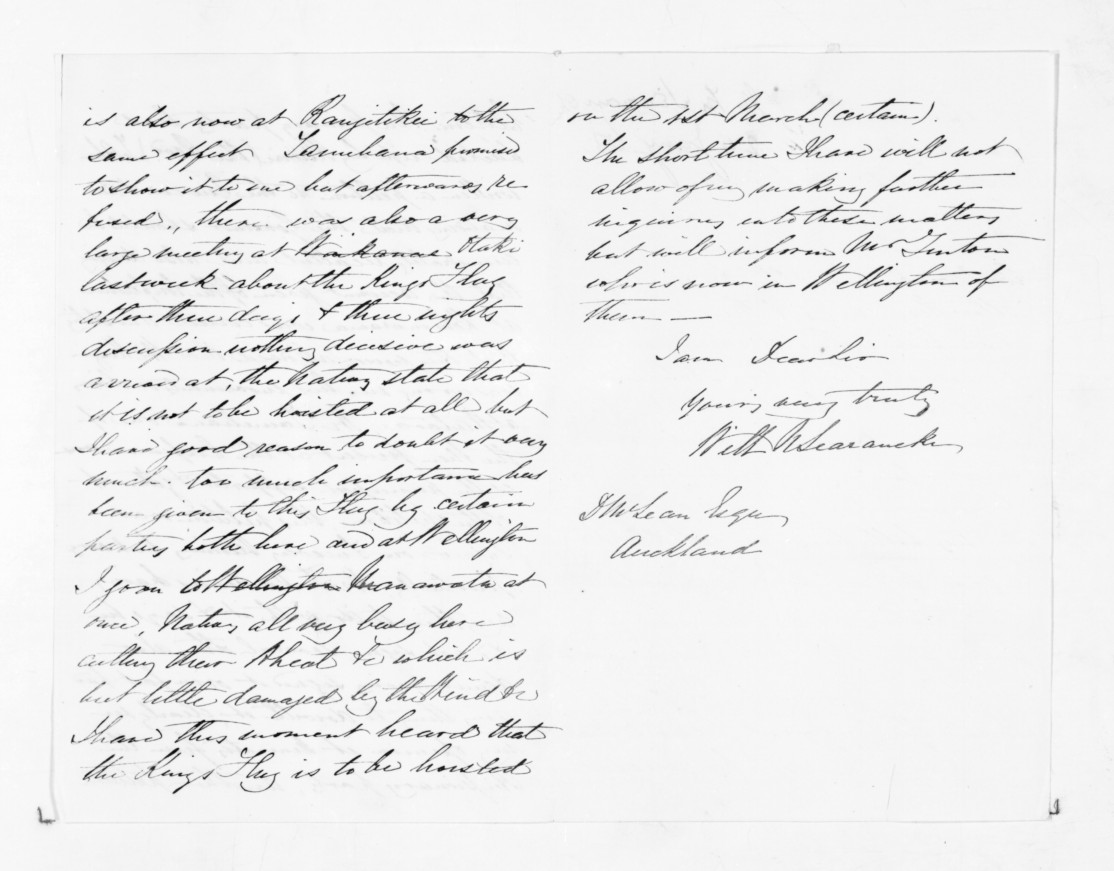 is also now at Rangitikei to the
same effect Tamihana promised
to show it to me but afterwards re
fused ,, there was also a very
large meeting at Waikanae Otaki
last week about the Kings Flag
after three days & three nights
discussion nothing decisive was
arrived at, the Natives state that
it is not to be hoisted at all but
I have good reason to doubt it very
much. too much importance has
been given to this Flag by certain
parties both here and at Wellington
I go on to Wellington Manawatu at
once, Natives all very busy here
cutting their Wheat &c which is
but little damaged by the Wind &c
I have this moment heard that
the Kings Flag is to be hoisted
on the 1st March (certain).
The short time I have will not
allow of my making further
inquiries into these matters
but will inform Mr
who is now in Wellington of
them —
I am Dear Sir
Yours very truly
Will N Searancke
D McLean Esqre
Auckland